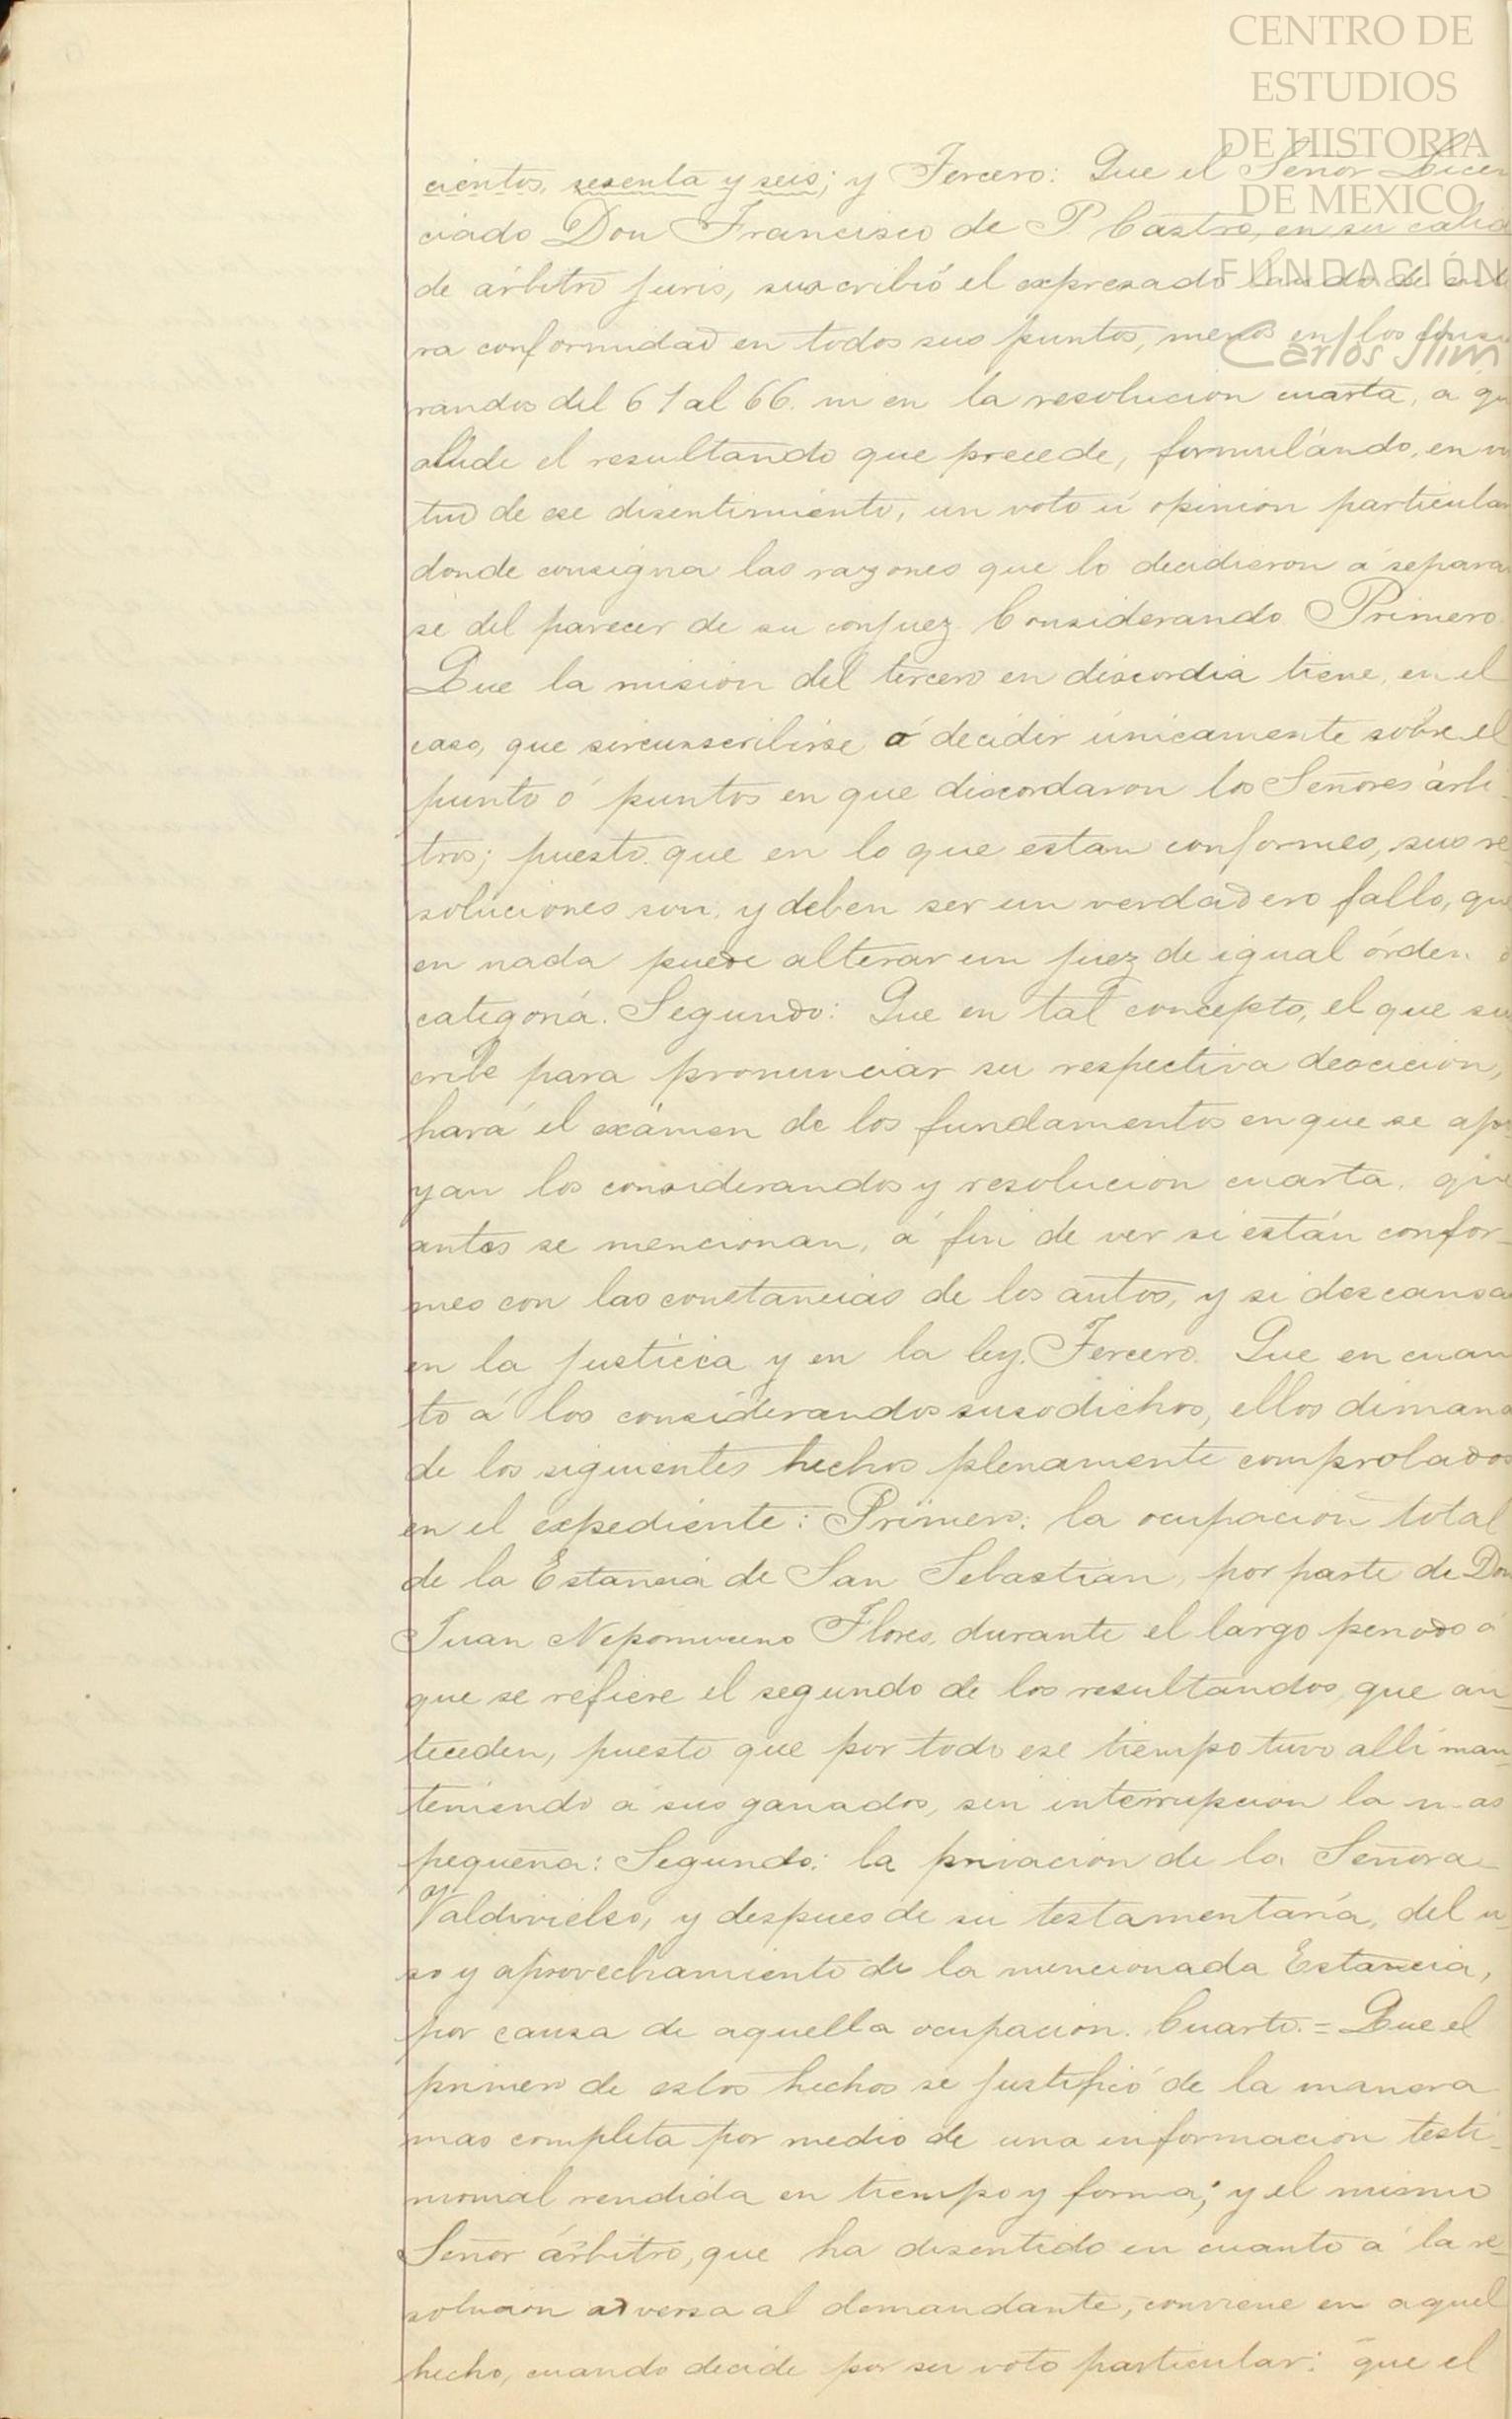 CENTRO DE
ESTUDIOS
DE HISTORIA
DE MEXICO
FUNDACIÓN
Carlos Slim
cientos, sesenta y seis; y Tercero: Que el Señor Licen
ciado Don Francisco de P. Castro, en su calid
de árbitro juris, suscribió el expresado laudo de ente
ra conformidad en todos sus puntos, menos en los conside
randos del 61 al 66. ni en la resolucion cuarta, a qu
alude el resultando que precede, formulándo, en vir
tud de ese disentimiento, un voto ú opinion particular
donde consigna las razones que lo decidieron á separar
se del parecer de su conjuez. Considerando Primero.
Que la mision del tercero en discordia tiene, en el
caso, que sircunscribirse á decidir únicamente sobre el
punto ó puntos en que discordaron los Señores árbi
tros; puesto que en lo que estan conformes, sus re
soluciones son, y deben ser un verdadero fallo, que
en nada puede alterar un juez de igual órden ó
categoría. Segundo: Que en tal concepto, el que sus
cribe para pronunciar su respectiva descicion,
hará el exámen de los fundamentos en que se apo
yan los considerandos y resolucion cuarta, que
antes se mencionan, á fin de ver si están confor-
mes con las constancias de los autos, y si descansan
en la justicia y en la ley. Tercero. Que en cuan
to á los considerandos susodichos, ellos dimana
de los siguientes hechos plenamente comprobados
en el expediente: Primero: la ocupacion total
de la Estancia de San Sebastian, por parte de Don
Juan Nepomuceno Flores, durante el largo periodo á
que se refiere el segundo de los resultandos que an-
teceden, puesto que por todo ese tiempo tuvo allí man-
teniendo á sus ganados, sin interrupcion la mas
pequeña: Segundo: la privacion de la Señora
Valdivielso, y despues de su testamentaría, del u-
so y aprovechamiento de la mencionada Estancia,
por causa de aquella ocupacion. Cuarto.= Que el
primero de estos hechos se justificó de la manera
mas completa por medio de una informacion testi-
monial rendida en tiempo y forma; y el mismo
Señor árbitro, que ha disentido en cuanto á la re-
solucion adversa al demandante, conviene en aquel
hecho, cuando decide por su voto particular: que el